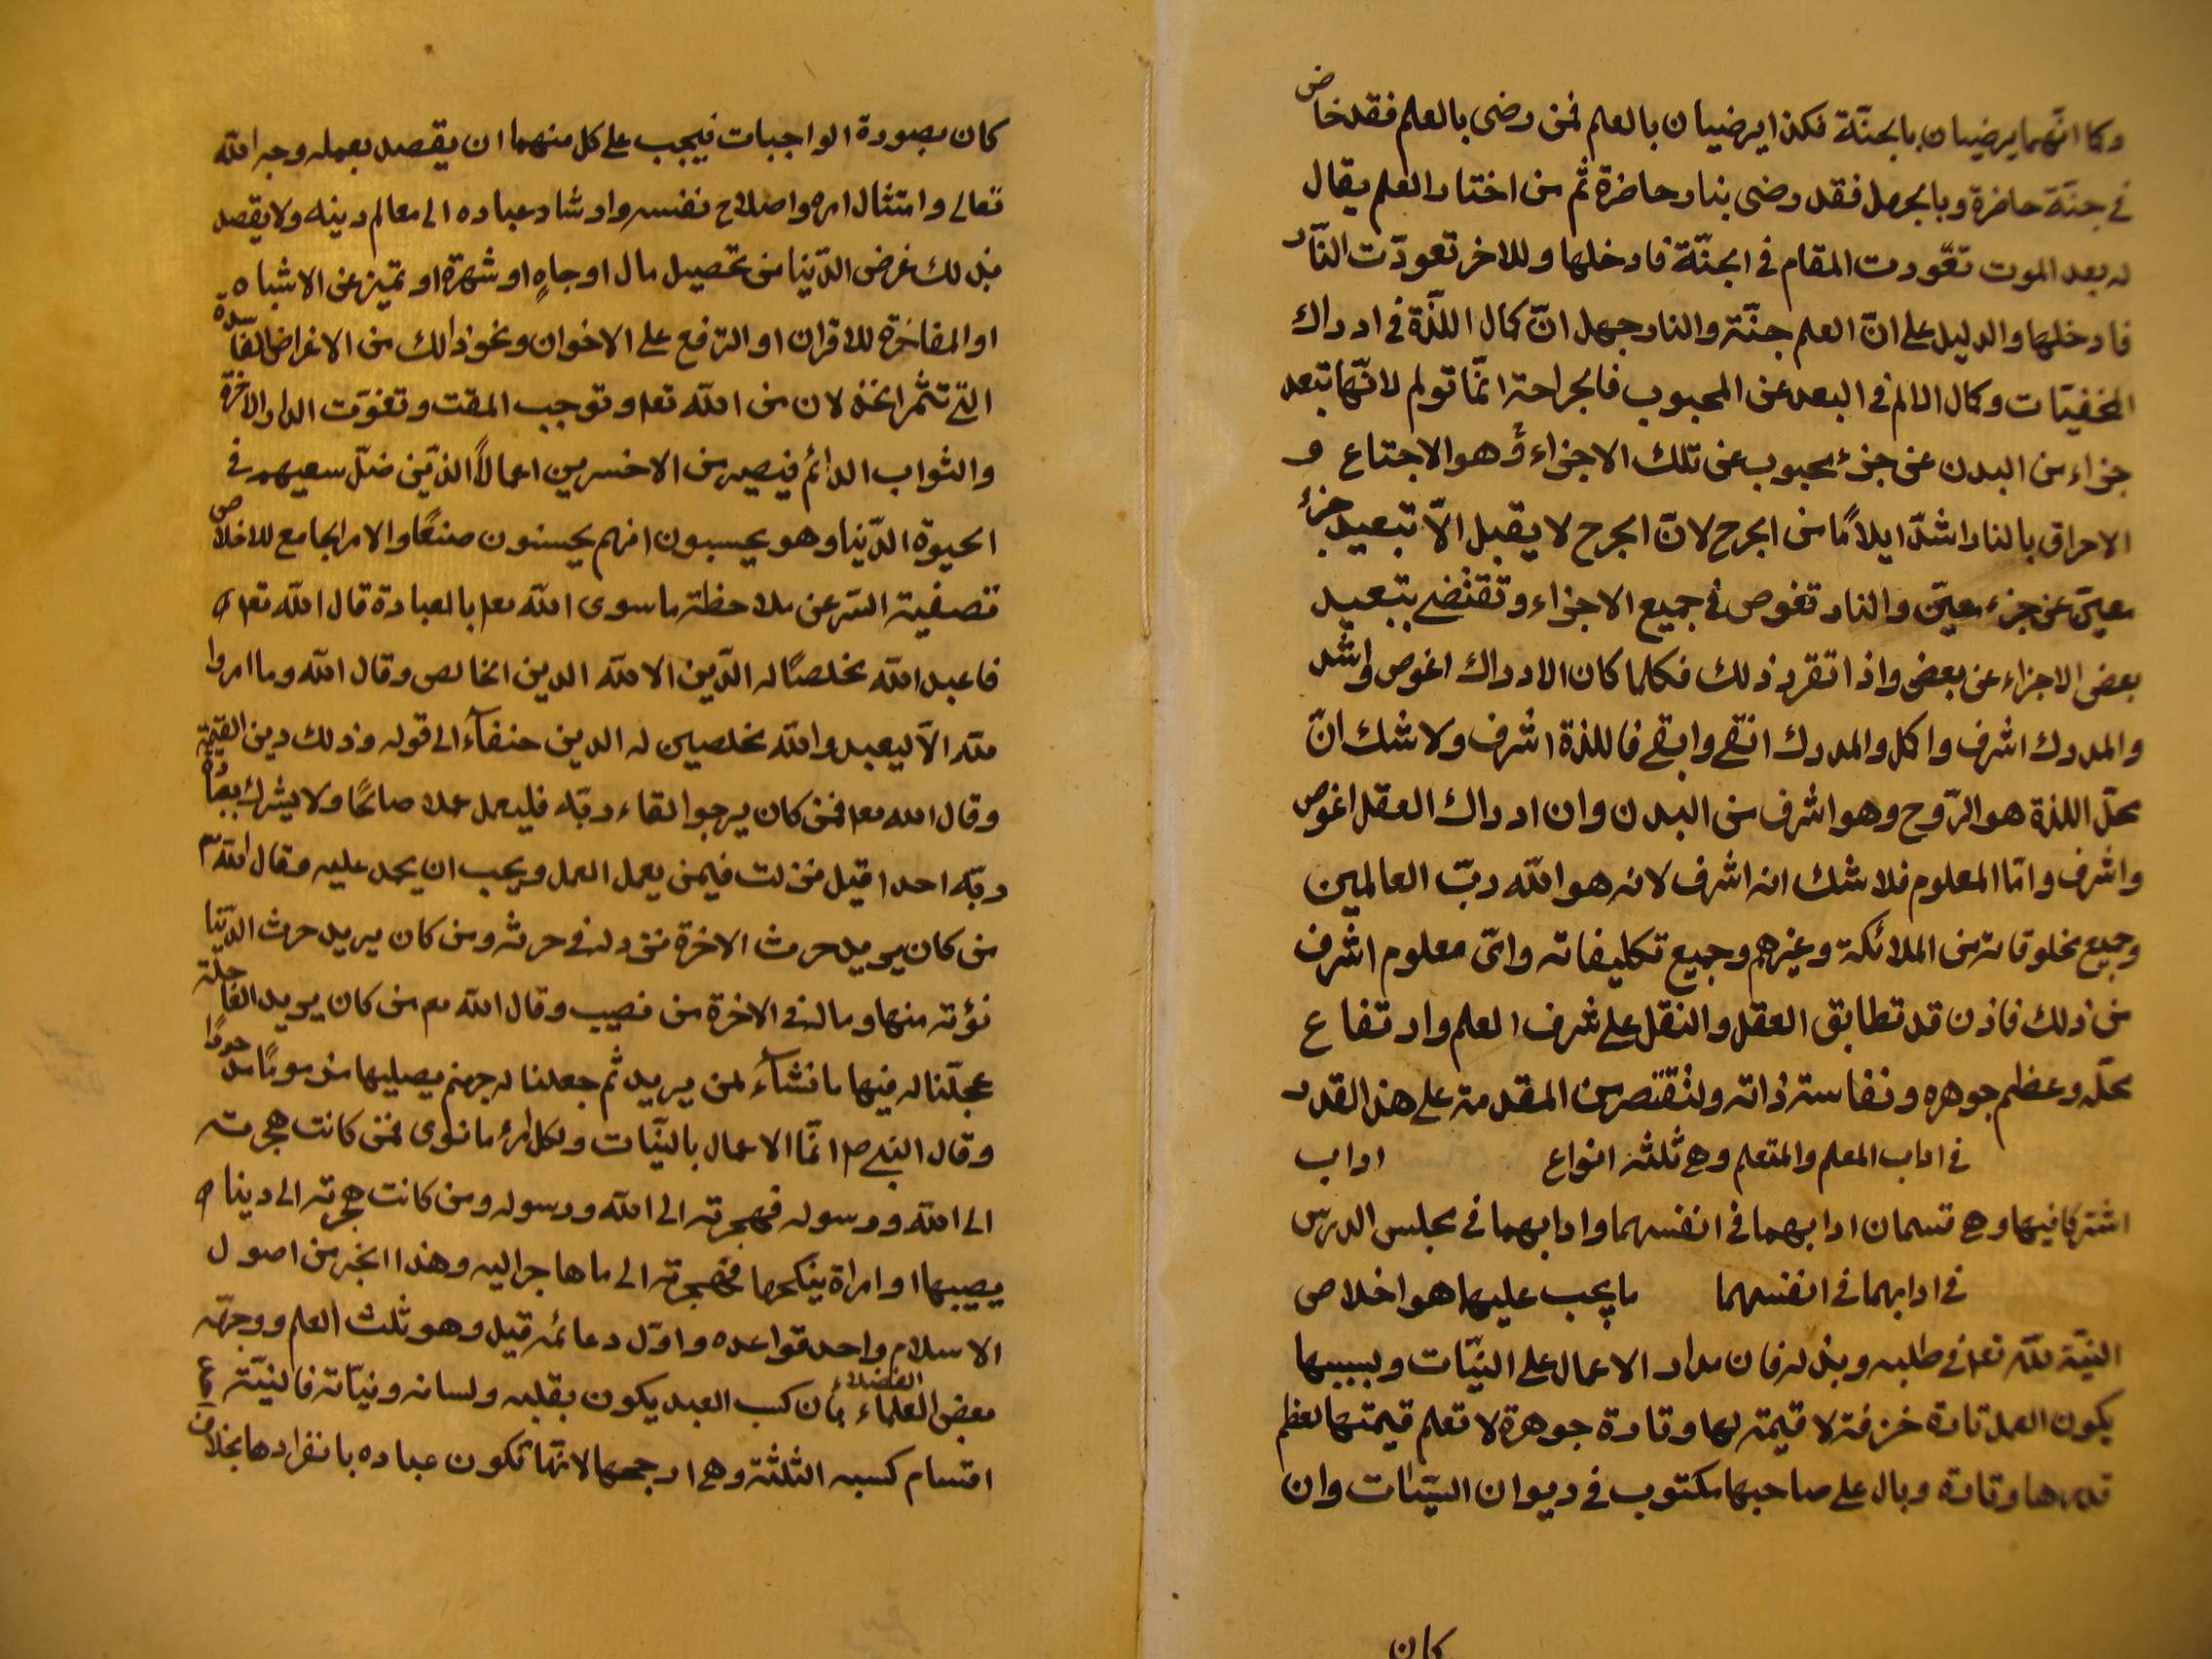 وكما انّهما يرضيان بالجنّة فكذا يرضيان بالعلم فمن رضى بالعلم فقد خاض
في جنّة حاضرة وبالجهل فقد رضى بنار حاضرة ثم من اختار العلم يقال
له بعد الموت تعوّدت المقام فى الجنّة فادخلها وللاخر تعودّت النّار
فادخلها والدليل على انّ العلم جنّة والنار جهل انّ كمال اللذّة فى ادراك
المخفيّات وكمال الالم فى البعد عن المحبوب فالجراحة انّما تولم لانّها تبعد
جزاء من البدن عن جزء محبوب عن تلك الاجزاء وهو الاجتماع و
الاحراق بالنار اشدّ ايلامًا من الجرح لانّ الجرح لا يقبل الاّ تبعيد جزء
معيّن عن جزء معيّن والنار تغوص فى جميع الاجزاء وتقتضى بتبعيد
بعض الاجزاء عن بعض واذا تقرر ذلك فكلما كان الادراك اغوص واشد
والمدرك اشرف واكمل والمدرك انقى وابقى فاللذة اشرف ولا شك انّ
محلّ اللذة هو الرّوح وهو اشرف من البدن وان ادراك العقل اغوص
واشرف وامّا المعلوم فلا شك انه اشرف لانه هو اللّه ربّ العالمين
وجميع مخلوقاته من الملائكة وغيرهم وجميع تكليفاته واىّ معلوم اشرف
من ذلك فاذن قد تطابق العقل والنقل على شرف العلم وارتفاع
محلّه وعظم جوهره ونفاسة ذاته ولنقتصر من المقدمة على هذا القدر
فى اداب المعلم والمتعلم وهى ثلثة انواع اداب
اشتركا فيها وهى قسمان ادابهما فى انفسهما وادابهما فى مجلس الدرس
فى ادابهما فى انفسهما ما يجب عليهما هو اخلاص
النيّة للّه تعا فى طلبه وبذله فان مدار الاعمال على النيّات وبسببها
يكون العمل تارة خزفة لا قيمة لها وتارة جوهرة لا تعلم قيمتها لعظم
قدرها وتارة وبال على صاحبها مكتوب فى ديوان السيّئات وان
كان
كان بصورة الواجبات فيجب على كل منهما ان يقصد بعمله وجه اللّه
تعالى وامتثال امره واصلاح نفسه وارشاد عباده الى معالم دينه ولا يقصد
بذلك غرض الدّنيا من تحصيل مال او جاهٍ او شهرة او تميّز عن الاشباه
او المفاخرة للاقران او الترفع على الاخوان ونحو ذالك من الاغراض الفاسدة
التى تثمر الخذلان من اللّه تعا وتوجب المقت وتفوّت الدار الاخرة
والثواب الدائم فيصير من الاخسرين اعمالاً الذّين ضلّ سعيهم فى
الحيوة الدّنيا وهو يحسبون انهم يحسنون صنعًا والامر الجامع للاخلاص
تصفية السّر عن ملاحظة ما سوى اللّه تعا بالعبادة قال اللّه تعا
فاعبد اللّه مخلصًا له الدّين الا للّه الدين الخالص وقال اللّه وما امروا
للّه الاّ ليعبدوا اللّه مخلصين له الدين حنفآء الى قوله وذلك دين القيّمة
وقال اللّه تعا فمن كان يرجوا لقاء ربّه فليعمل عملا صالحًا ولا يشرك بعبادة
ربّه احدا قيل نزلت فيمن يعمل العمل ويحب ان يحمد عليه وقال اللّه تع
من كان يريد حرث الاخرة نزد له فى حرثه ومن كان يريد حرث الدّنيا
نؤته منها وماله فى الاخرة من نصيب وقال اللّه تع من كان يريد العاجلة
عجلّنا له فيها ما نشآء لمن يريد ثم جعلنا له جهنم يصليها مذمومًا مدحورًا
وقال النبى ص انمّا الاعمال بالنيّات ولكل امرء ما نوى فمن كانت هجرته
الى اللّه ورسوله فهجرته الى اللّه ورسوله ومن كانت هجرته الى دينا
يصيبها او امراة ينكحها فهجرته الى ما هاجر اليه وهذا الخبر من اصول
الاسلام واحد قواعده واوّل دعائمه قيل وهو ثلث العلم ووجهّه
بعض العلماء الفضلاء بأن كسب العبد يكون بقلبه ولسانه ونيّاته فالنيّة
اقسام كسبه الثلثة وهى ارجحها لانّها تكون عباده بانفرادها بخلاف